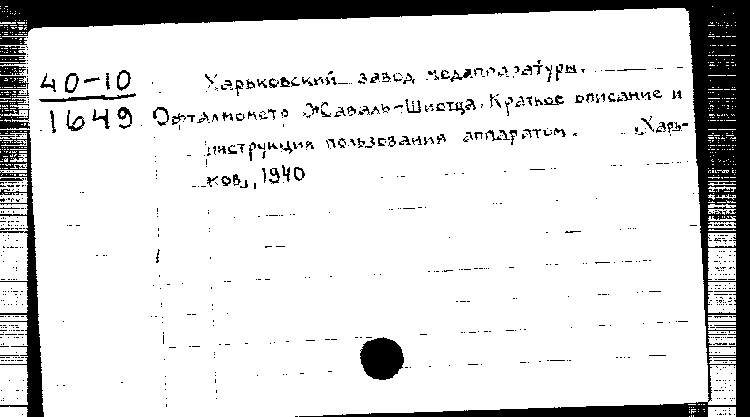 40-10 Харьковский завод медаппаратуры.
1649 Офталмометр Жаваль-Шиотца. Краткое описание и
инструкция пользования аппаратом. „Харь-
ков„, 1940